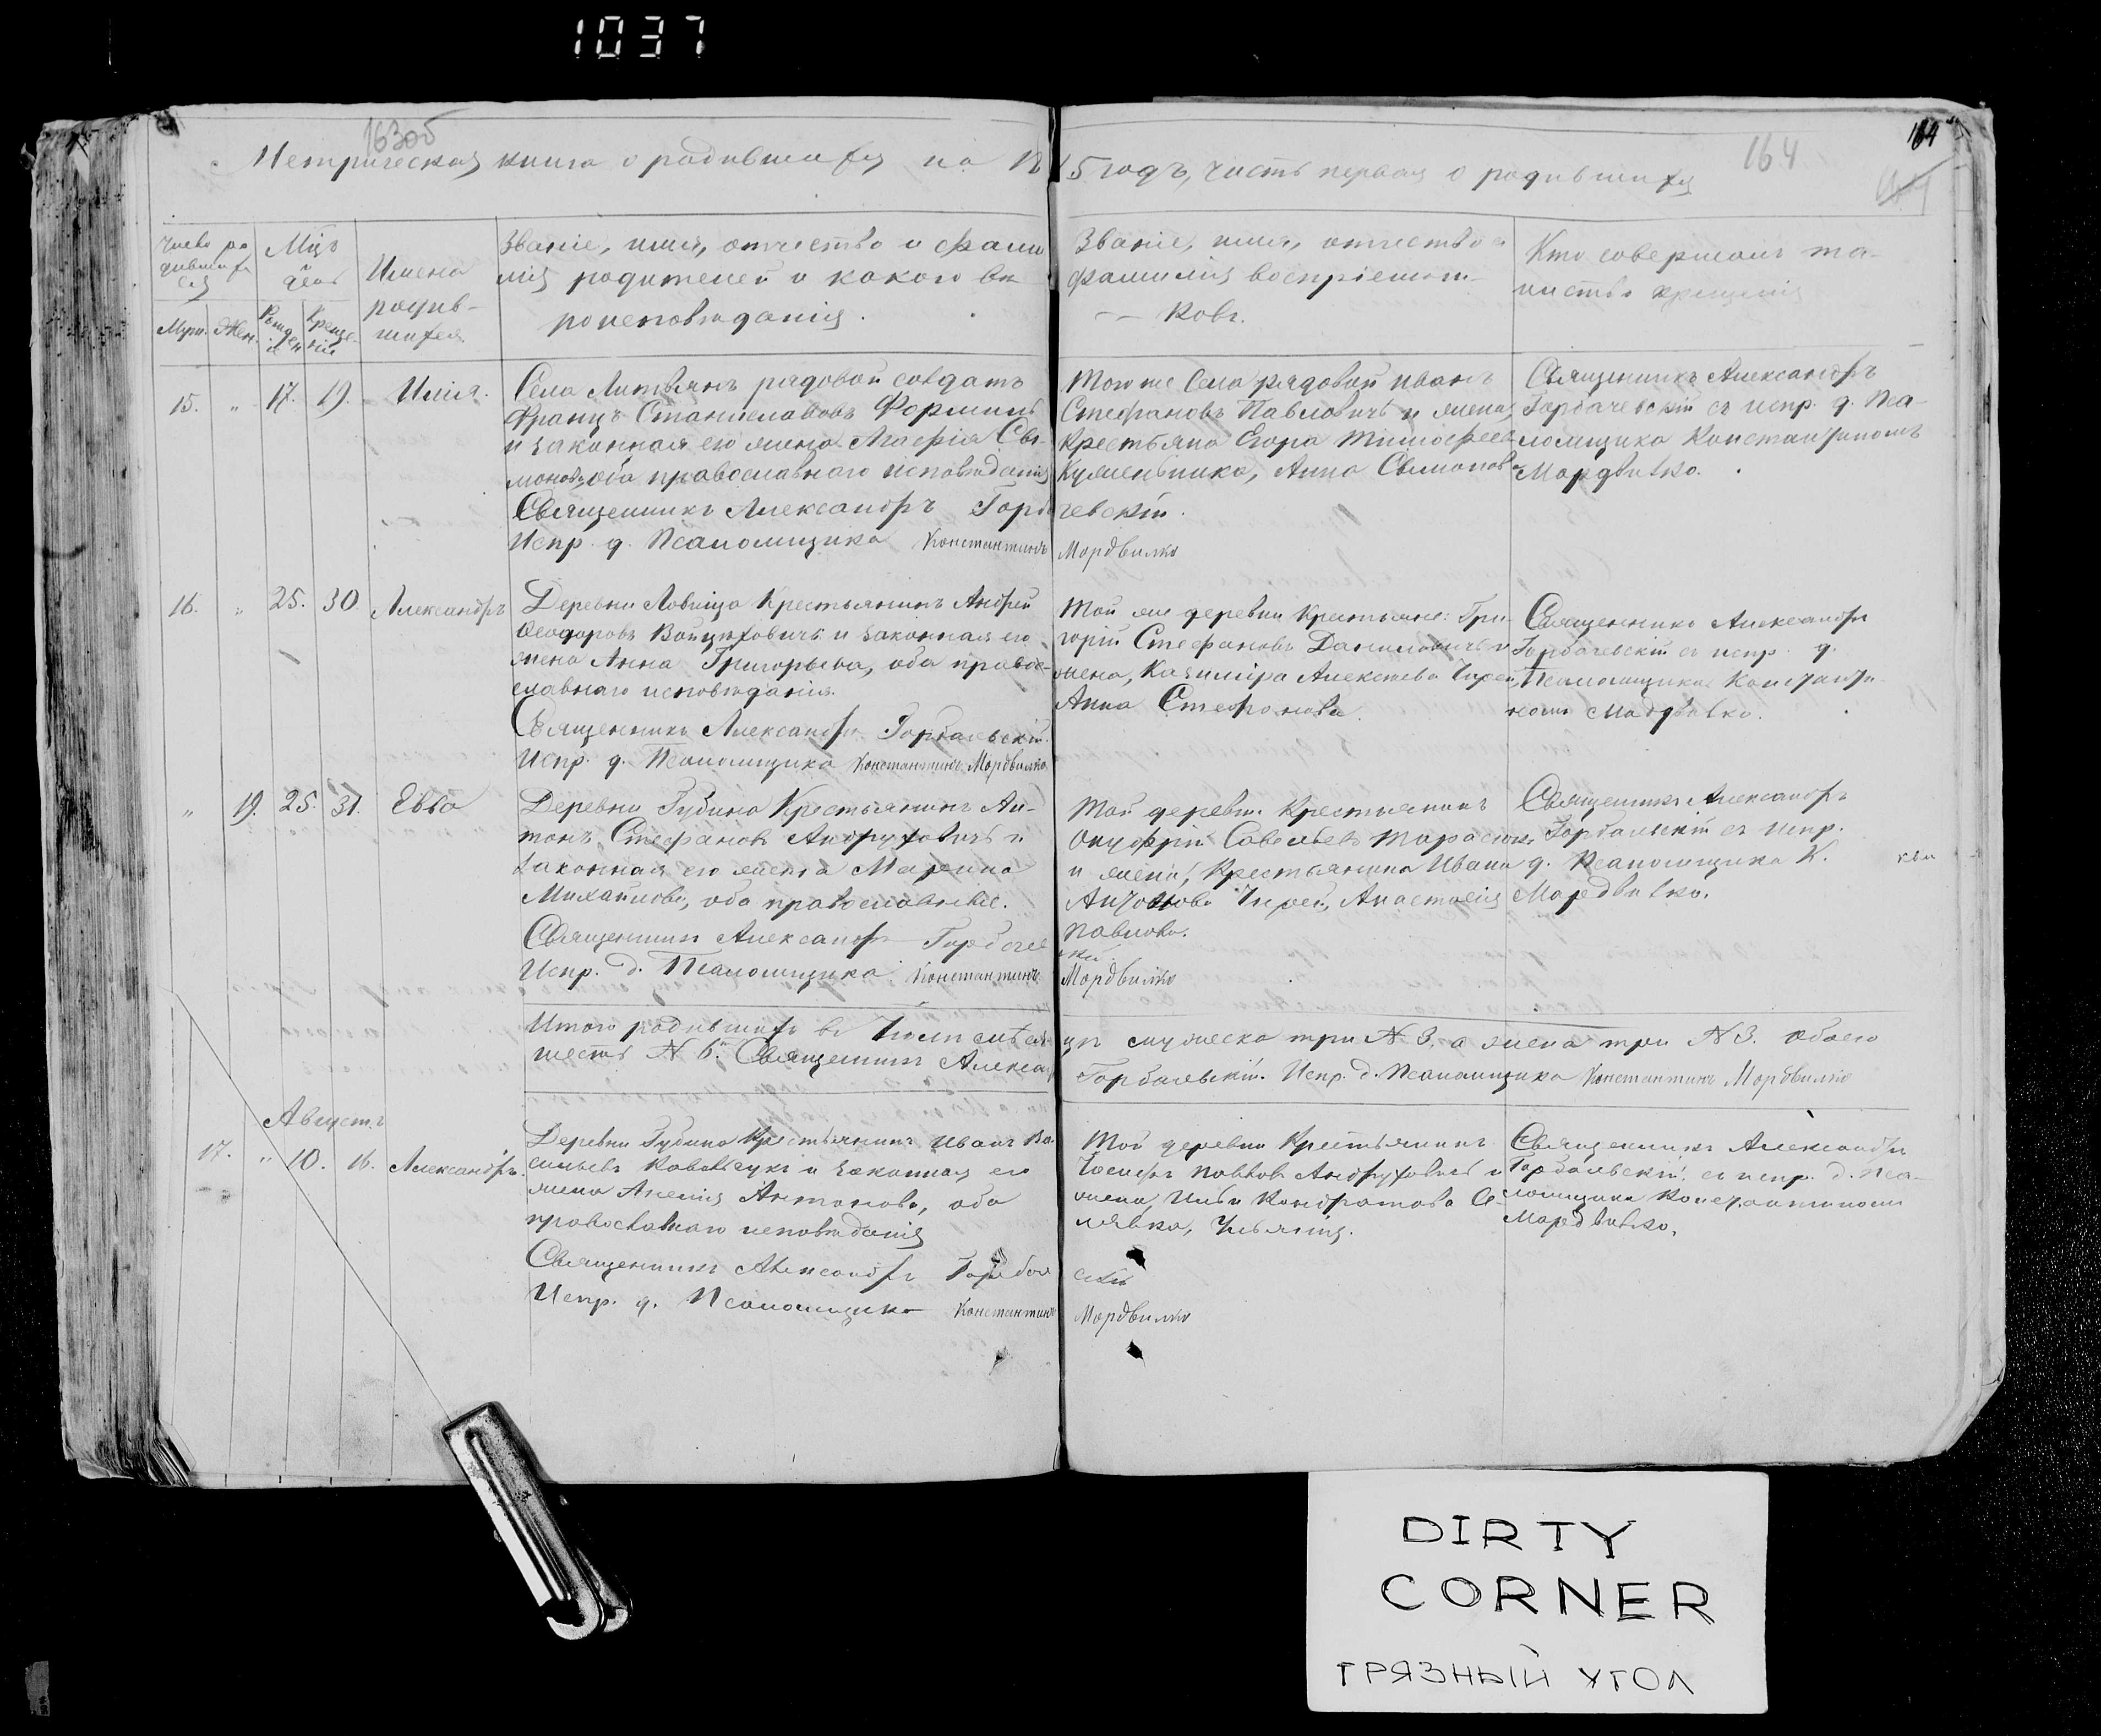 1037
163об
164
164
Метрическая книга о родившихся на 18
5 годъ, часть первая о родившихся
Число ро
дившихся
Муж. Жен.
Мцъ
день
Рожденія
Крещенія
Имена
родив-
шихся
Званіе, имя, отчество и фами
лія родителей и какого вѣ
роисповѣданія.
Званіе, имя, отчество и
фамилія воспріемни-
ковъ.
Кто совершалъ та-
инство крещенія
15. " 17. 19. Илія.
Села Литвянъ рядовой солдатъ
Францъ Станиславовъ
и законная его жена Агафія Си-
монова, оба православнаго исповѣданія
Священникъ Александръ Горба
Испр. д. Псаломщика Константинъ
Того же Села рядовой Иванъ
Стефановъ Павловичъ и жена
Крестьяна Егора Тимофеева
Анна Симонова
чевскій.
Мордвилко
Священникъ Александръ
Горбачевскій съ испр. д. Пса-
ломщика Константиномъ
Мордвилко.
16. " 25. 30 Александръ
Деревни Ловища Крестьянинъ Андрей
Феодоровъ Войцеховичъ и законная его
жена Анна Григорьева, оба право-
славнаго исповѣданія.
Священникъ Александръ Горбачевскій.
Испр. д. Псаломщика Константинъ Мордвилко
Той же деревни Крестьяне: Гри-
горій Стефановъ Даниловичъ и
жена, Казиміра Алексеева
Анна Стефанова.
Священникъ Александръ
Горбачевскій съ испр. д.
Псаломщика Константи-
номъ Мордвилко.
" 19. 25. 31. Евва
Деревни Губина Крестьянинъ Ан-
тонъ Стефановъ Андруховичъ и
законная его жена Марина
Михайлова, оба православные.
Священникъ Александръ Горбаче
Испр. д. Псаломщика Константинъ
Той деревни Крестьянинъ
Онуфрій Савельевъ Тарасюкъ
и жена, Крестьянина Ивана
Антонова Анастасія
Павлова.
скій
Мордвилко
Священникъ Александръ
Горбачевскій съ испр.
д. Псаломщика К.
Мордвилко.
Итого родившихъ въ Іюлѣ мѣся
шесть N 6. Священникъ Александ
цѣ мужеска три N 3, а женска три N 3. обоего
Горбачевскій. Испр. д. Псаломщика Константинъ Мордвилко
Августъ
17. " 10. 16. Александръ.
Деревни Губина Крестьянинъ Иванъ Ва-
сильевъ Ковальчукъ и законная его
жена Антонова, оба
православнаго исповѣданія
Священникъ Александръ Горбач
Испр. д. Псаломщика Константинъ
Той деревни Крестьянинъ
Іосифъ Павловъ Андруховичъ и
жена Ильи Кондратова Се-
лявка, Ульянія.
скій
Мордвилко
Священникъ Александръ
Горбачевскій съ испр. д. Пса-
ломщика Константиномъ
Мордвилко.
DIRTY
CORNER
ГРЯЗНЫЙ УГОЛ